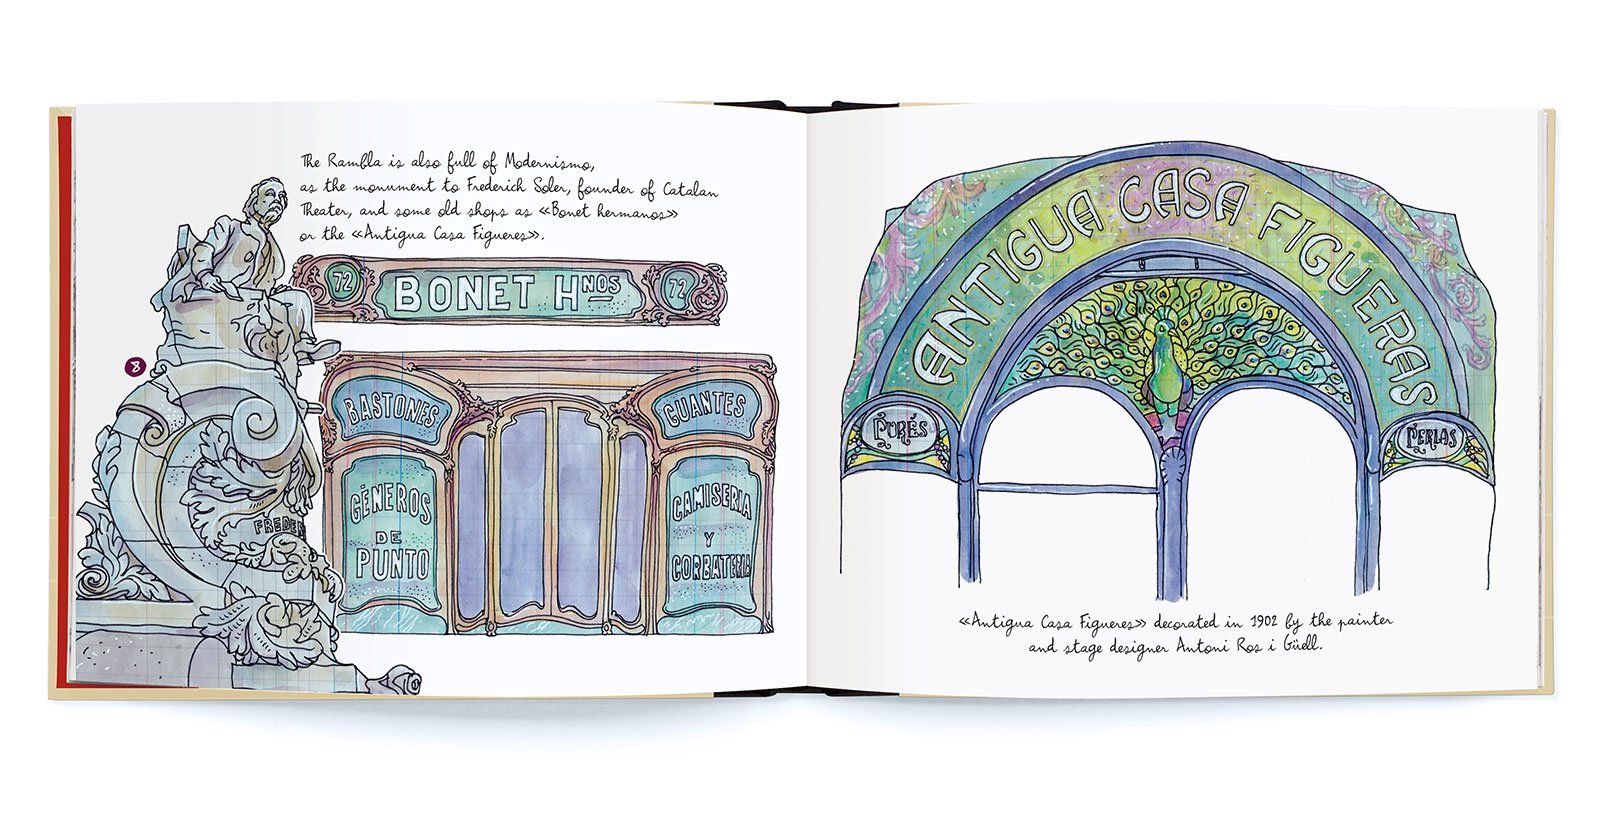 The Rambla is also full of Modernismo,
as the monument to Frederich Soler, founder of Catalan
Theater, and some old shops as «Bonet hermanos»
or the «Antigua Casa Figueres».
72 BONET Hnos 72
8
BASTONES
GUANTES
GENEROS
DE
PUNTO
CAMISERIA
Y
CORBATERIA
FREDER
ANTIGUA CASA FIGUERAS
PURÉS
PERLAS
«Antigua Casa Figueres» decorated in 1902 by the painter
and stage designer Antoni Ros i Güell.